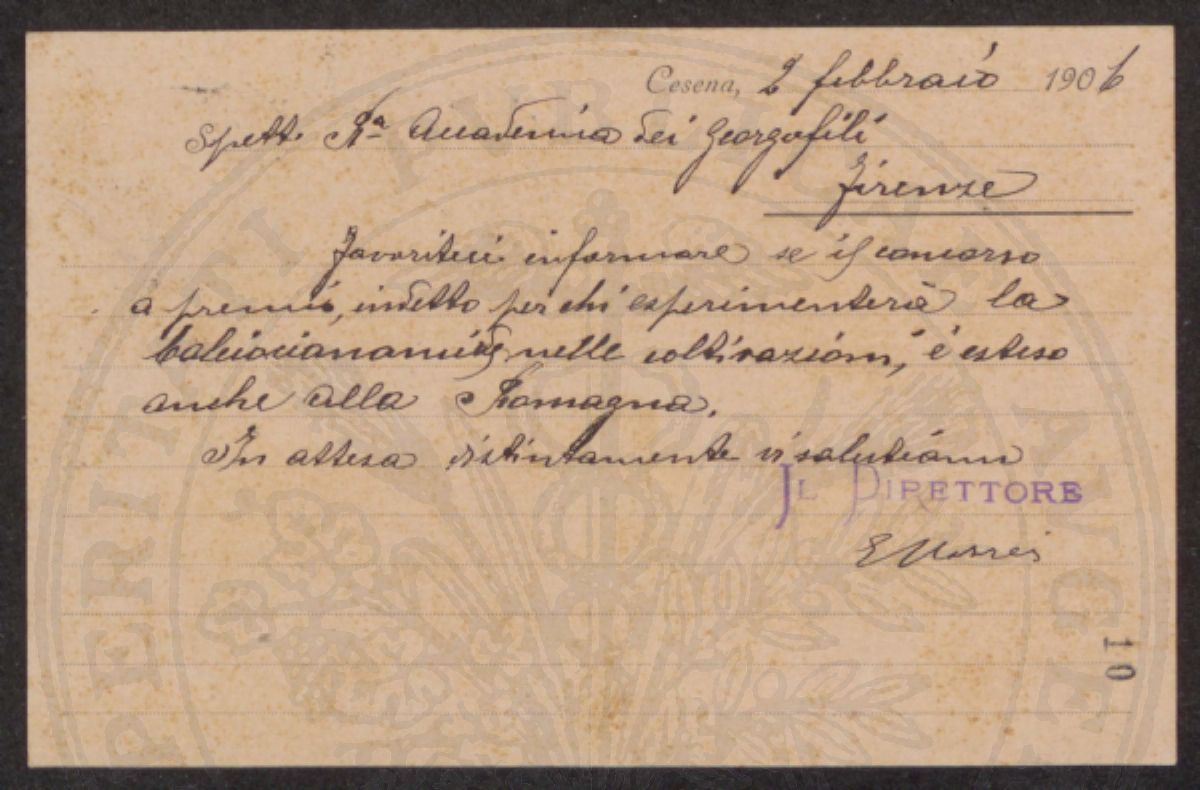 Cesena, 2 febbraio 1906
Spett. Rª Accademia dei Georgofili
Firenze
Favoriteci informare se il concorso
a premi, indetto per chi esperimenterà la
Calciocianamide nelle coltivazioni, è esteso
anche alla Romagna.
In attesa distintamente vi salutiamo
IL DIRETTORE
10